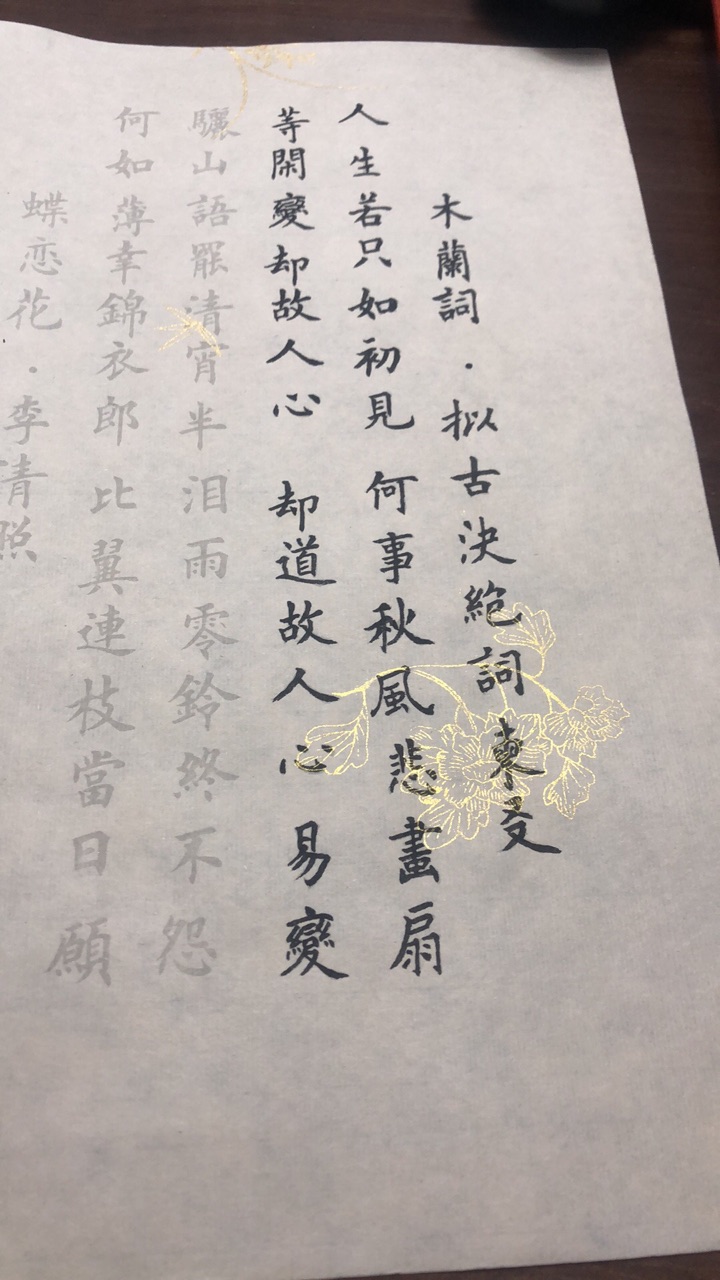 木蘭詞·拟古決絕詞柬友
人生若只如初見 何事秋風悲畫扇
等閑變却故人心 却道故人心易變
驪山語罷清宵半 泪雨零鈴終不怨
何如薄幸錦衣郎 比翼連枝當日願
蝶恋花·李清照